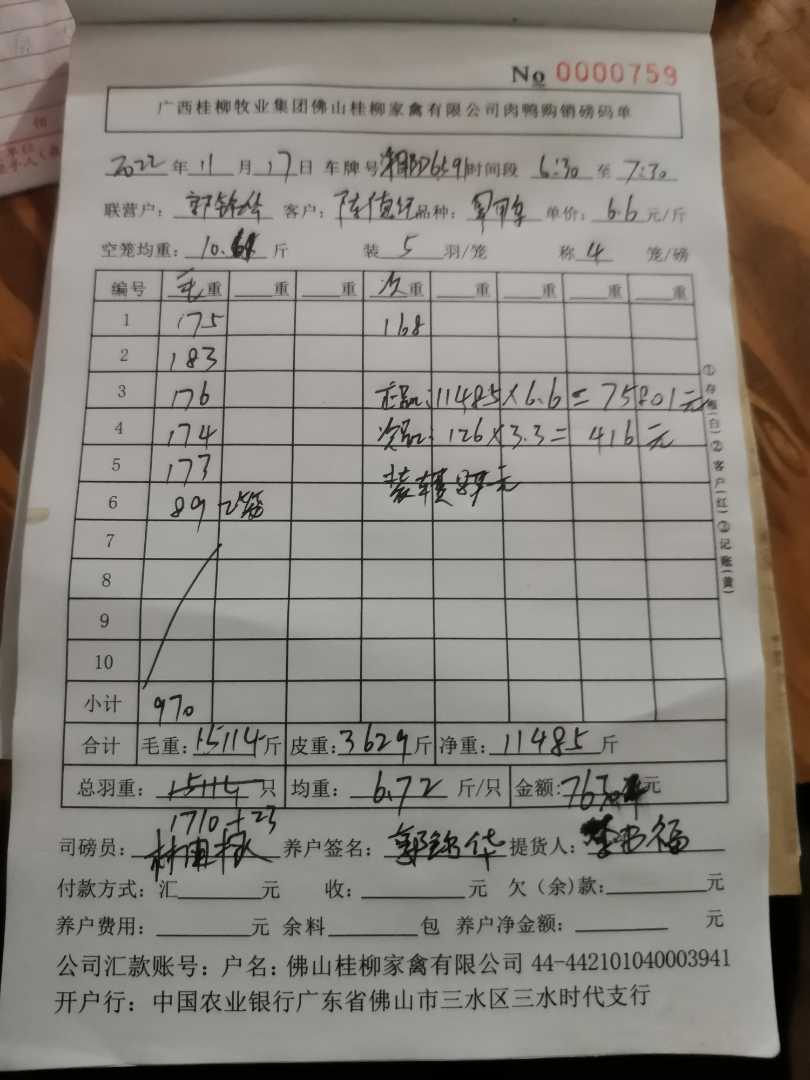 No 0000759
广西桂柳牧业集团佛山桂柳家禽有限公司肉鸭购销磅码单
2022年11月17日 车牌号 时间段 6:30 至 7:30
联营户: 郭锦华 客户: 品种: 单价: 6.6 元/斤
空笼均重: 10. 斤 装 5 羽/笼 称 4 笼/磅
编号 毛重 重 重 次重 重 重 重 重
1 175 168
2 183
3 176 正品:11485×6.6=75801元
4 174 次品:126×3.3=416元
5 173 装车费 元
6 89
7
8
9
10
小计 970
合计 毛重:15114斤 皮重:3629斤 净重:11485斤
总羽重: 15114 只 均重: 6.72 斤/只 金额: 元
1710+23
司磅员: 养户签名: 郭锦华 提货人:
付款方式:汇 元 收: 元 欠(余)款: 元
养户费用: 元 余料 包 养户净金额: 元
公司汇款账号:户名:佛山桂柳家禽有限公司 44-442101040003941
开户行:中国农业银行广东省佛山市三水区三水时代支行
①存根(白)②客户(红)③记账(黄)